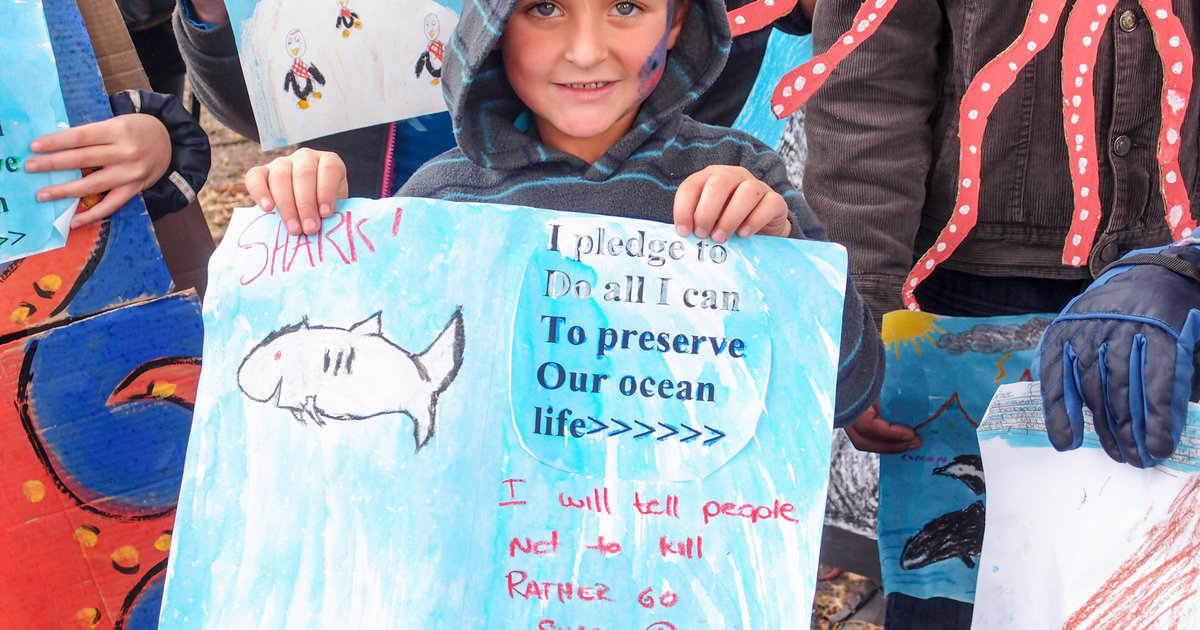 SHARK!
I pledge to
Do all I can
To preserve
Our ocean
life>>>>>>>
I will tell people
Not to kill.
RATHER GO